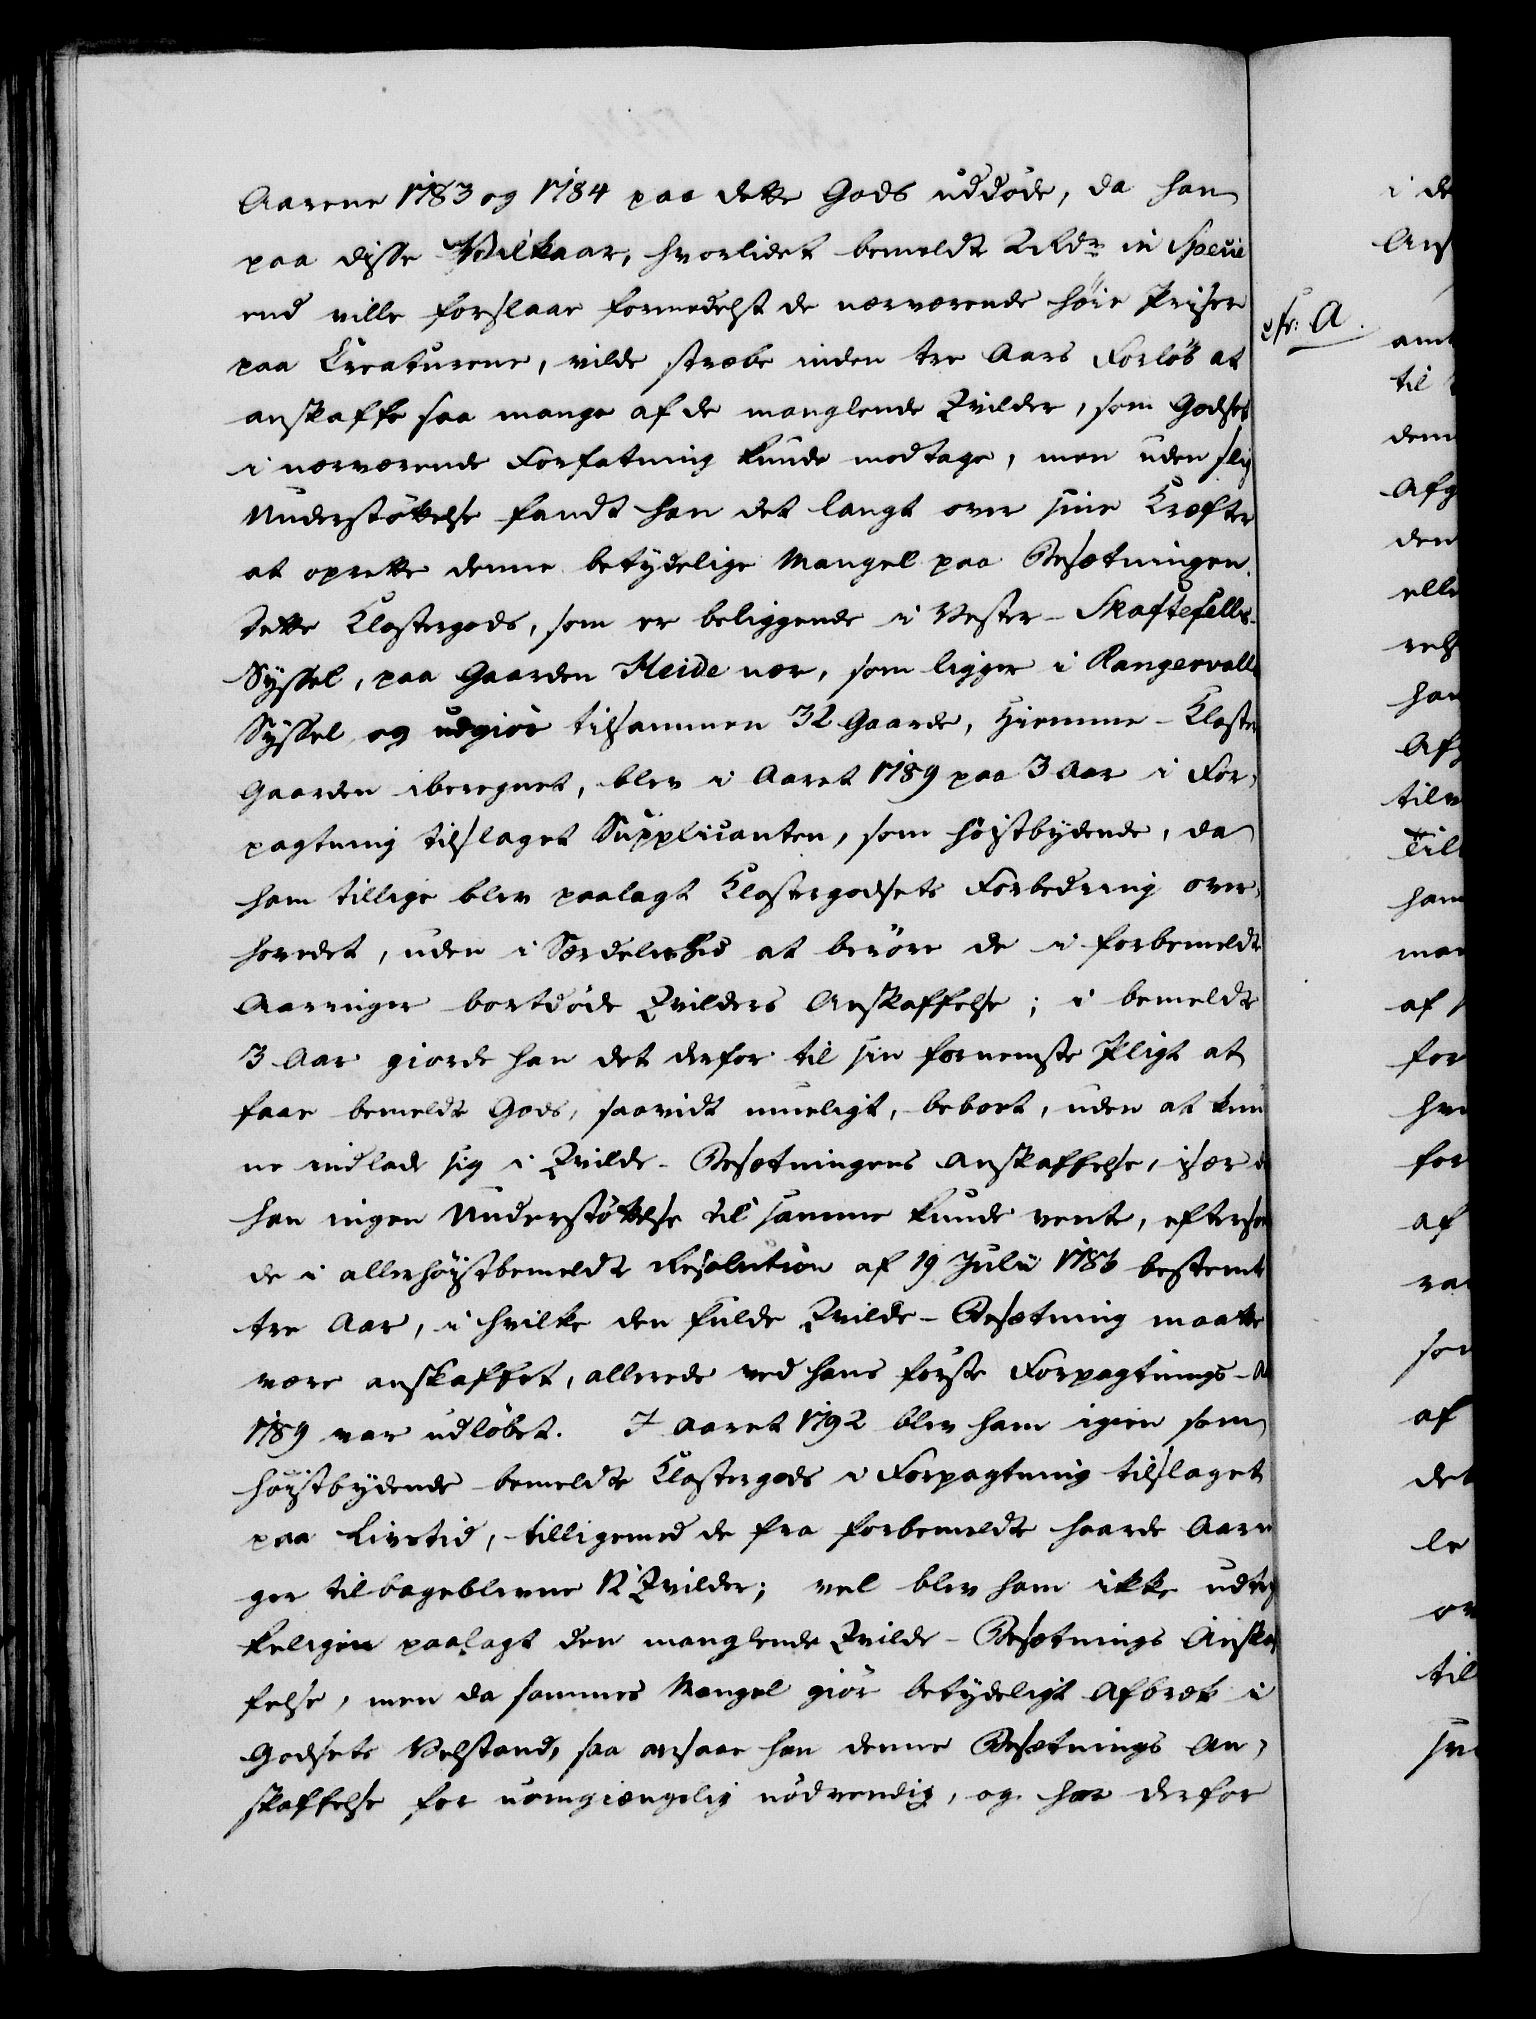 Aarene 1783 og 1784 paa dette Gods uddøde, da han
paa disse Vilkaar, hvorlidet bemeldt 2 Rdr in Specie
end ville forslaae formedelst de nærværende høie Priser
paa Creaturene, vilde stræbe inden tre Aars Forløb at
anskaffe saa mange af de manglende Qvilder, som Godset
i nærværende Forfatning kunde modtage, men uden slig
Understøttelse fandt han det langt over sine Kræfter
at oprette denne betydelige Mangel paa Besætningen.
Dette Klostergods, som er beliggende i Vester-Skaftefells-
Syssel, paa Gaarden Meide nær, som ligger i Rangervalle
Syssel og udgiør tilsammen 32 Gaarde, Hiemme-Kloster
Gaarden iberegnet, blev i Aaret 1789 paa 3 Aar i For-
pagtning tilslaget Supplicanten, som høistbydende, da
ham tillige blev paalagt Klostergodsets Forbedring over-
hovedet, uden i Særdeleshed at berøre de i forbemeldte
Aaringer bortdøde Qvilders Anskaffelse; i bemeldte
3 Aar giorde han det derfor til sin fornemste Pligt at
faae bemeldte Gods, saavidt mueligt, beboet, uden at kun-
ne indlade sig i Qvilde-Besætningens Anskaffelse, især da
han ingen Understøttelse til samme kunde vente, eftersom
de i allerhøistbemeldte Resolution af 19 Julii 1786 bestemte
tre Aar, i hvilke den fulde Qvilde-Besætning maatte
være anskaffet, allerede ved hans første Forpagtnings-A
1789 var udløbet. I Aaret 1792 blev ham igien som
høistbydende bemeldte Klostergods i Forpagtning tilslaget
paa Livstid, tilligemed de fra forbemeldte haarde Aarin
ger tilbageblevne 12 Qvilder; vel blev ham ikke udtryk
keligen paalagt den manglende Qvilde-Besætnings Anskaf
felse, men da sammes Mangel giør betydeligt Afbræk i
Godsets Velstand, saa ansaae han denne Besætnings An-
skaffelse for uomgiængelig nødvendig, og har derfor
cfr: A.